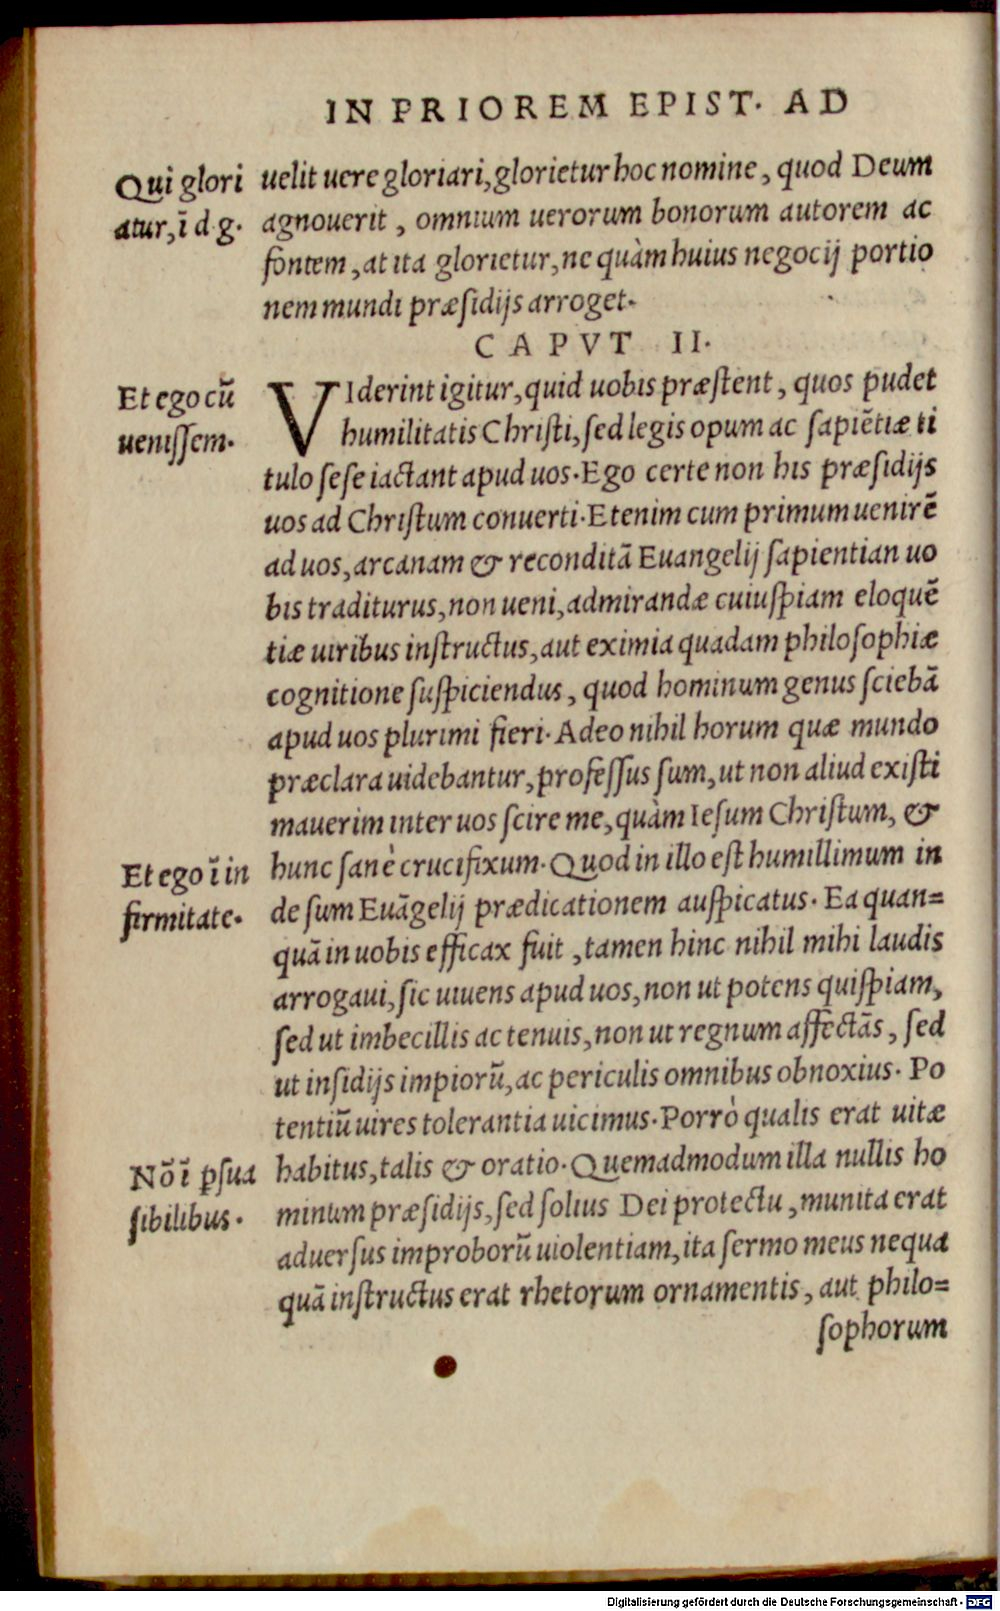 IN PRIOREM EPIST. AD
Qui glori
atur, ī d. g.
uelit uere gloriari, glorietur hoc nomine, quod Deum
agnouerit, omnium uerorum bonorum autorem ac
fontem, at ita glorietur, ne quàm huius negocij portio
nem mundi præsidijs arroget.
CAPVT II.
Et ego cū
uenissem.
VIderint igitur, quid uobis præstent, quos pudet
humilitatis Christi, sed legis opum ac sapiētiæ ti
tulo sese iactant apud uos. Ego certe non his præsidijs
uos ad Christum conuerti. Etenim cum primum uenirē
ad uos, arcanam & reconditā Euangelij sapientian uo
bis traditurus, non ueni, admirandæ cuiuspiam eloquē
tiæ uiribus instructus, aut eximia quadam philosophiæ
cognitione suspiciendus, quod hominum genus sciebā
apud uos plurimi fieri. Adeo nihil horum quæ mundo
præclara uidebantur, professus sum, ut non aliud existi
mauerim inter uos scire me, quàm Iesum Christum, &
Et ego ī in
firmitate.
hunc sanè crucifixum. Quod in illo est humillimum in
de sum Euāgelij prædicationem auspicatus. Ea quan=
quā in uobis efficax fuit, tamen hinc nihil mihi laudis
arrogaui, sic uiuens apud uos, non ut potens quispiam,
sed ut imbecillis ac tenuis, non ut regnum affectās, sed
ut insidijs impiorū, ac periculis omnibus obnoxius. Po
tentiū uires tolerantia uicimus. Porrò qualis erat uitæ
Nō ī ꝑsua
sibilibus.
habitus, talis & oratio. Quemadmodum illa nullis ho
minum præsidijs, sed solius Dei protectu, munita erat
aduersus improborū uiolentiam, ita sermo meus nequa
quā instructus erat rhetorum ornamentis, aut philo=
sophorum
Digitalisierung gefördert durch die Deutsche Forschungsgemeinschaft - DFG